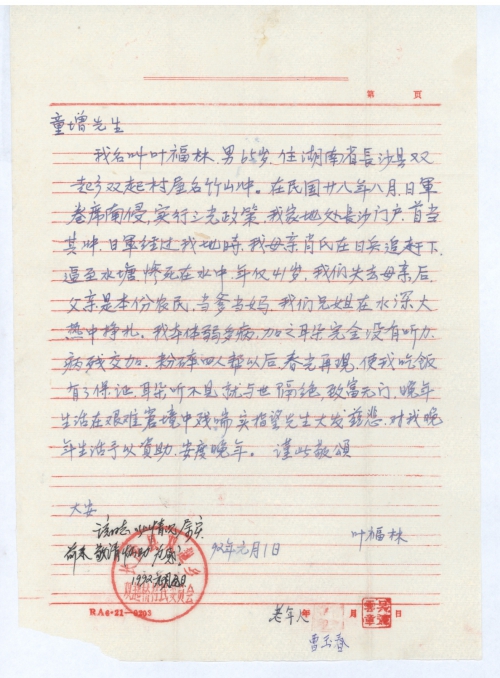 第 页
童增先生
我名叫叶福林,男65岁,住湖南省長沙县双
起乡双起村屋名竹山冲。在民国廿八年八月,日軍
卷席南侵,实行三光政策,我家地处长沙门户,首当
其冲,日軍经过我地時,我母亲肖氏在日兵追赶下,
逼至水塘惨死在水中,年仅41岁,我们失去母亲后,
父亲是本份农民,当爹当妈,我们兄姐在水深火
热中挣扎。我本体弱多病,加之耳朵完全没有听力,
病残交加,粉碎四人帮以后,春光再观,使我吃飯
有了保证,耳朵听不见就与世隔绝,致富无门,晚年
生活在艰难窘境中残喘,实指望先生大发慈悲,对我晚
年生活予以资助,安度晚年。谨此敬頌
大安
该同志 情况属实
敬请
1992
92年元月1日
叶福林
RA6-21-0203
老年人 月
曹玉春